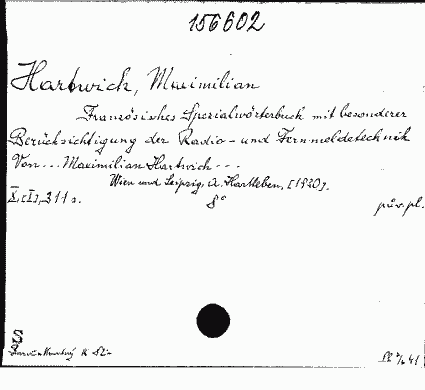 156602
Hartwich, Maximilian
Französisches Spezialwörterbuch mit besonderer
Berücksichtigung der Radio- und Fernmeldetechnik
Von... Maximilian Hartwich...
Wien und Leipzig, A. Hartleben, [1920].
X, [I], 311 s. 8° pův. pl.